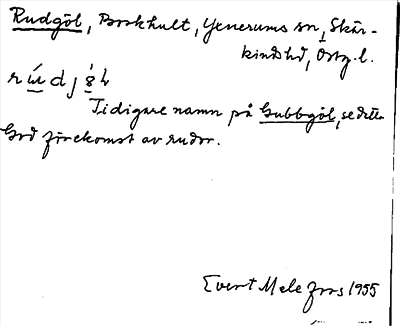 Rudgöl, Boskhult, Yxnerums sn, Skär-
kinds hd, Östg. l.
rúdjö̀l
Tidigare namn på Gubbgöl, se detta
God förekomst av rudor.
Evert Melefors 1955